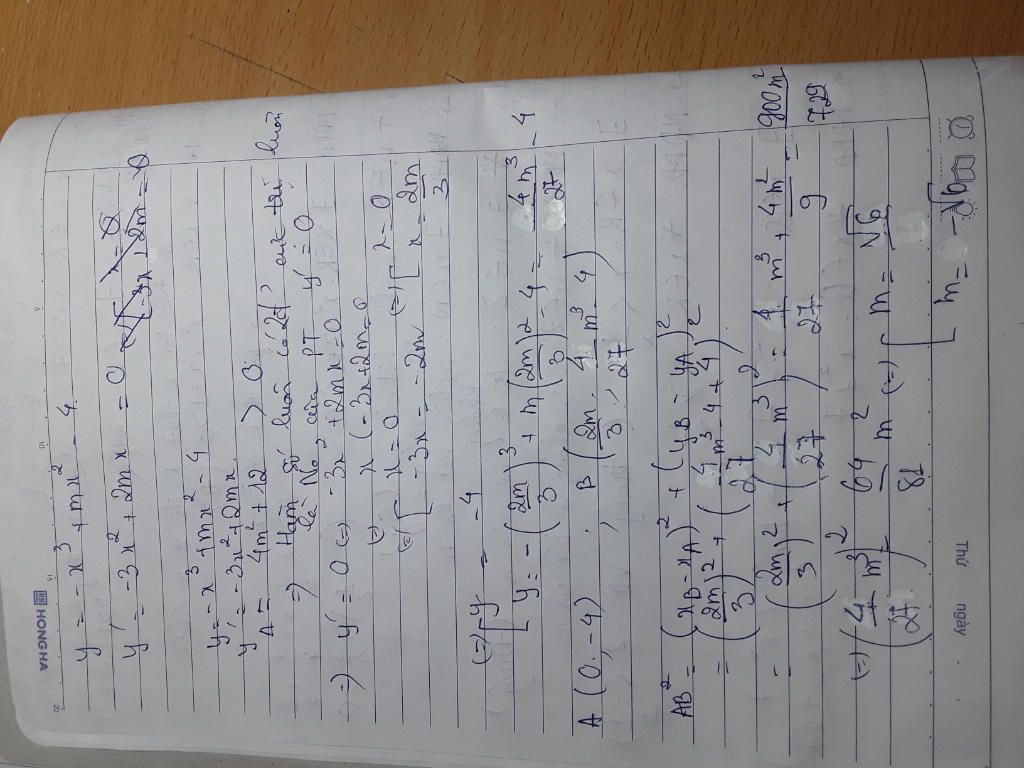 HONGHA
Thứ ngày
y = -x³ + mx² - 4.
y' = -3x² + 2mx = 0
y = -x³ + mx² - 4
y' = -3x² + 2mx
Δ = 4m² + 12 > 0
=> Hàm số luôn có 2 cực luôn
là No² của PT y' = 0
=) y' = 0 (=) -3x² + 2mx = 0
(=) x(-3x + 2m = 0
(=) [ x = 0
-3x = -2m (=) [ x = 0
x = 2m/3
(=) [ y = -4
y = -(2m/3)³ + m(2m/3)² - 4 = 4m³/27 - 4
A(0, -4), B(2m/3, 4/27 m³ - 4)
AB² = (xB - xA)² + (yB - yA)²
= (2m/3)² + (4/27 m³ - 4 + 4)²
= (2m/3)² + (4/27 m³)² = 4/27 m³ + 4m²/9 = 900m²/729
(=) (4/27 m³)² = 64/81 m² (=) [ m = √6
m = -√6